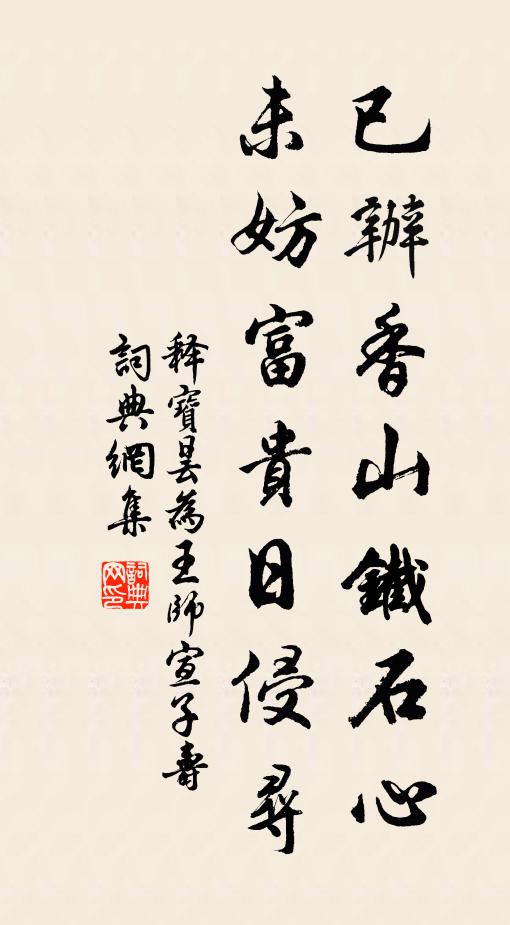 已辦香山鐵石心
未妨富貴日侵尋
釋寶曇為王師宣子壽
詞典網集
詞典网印